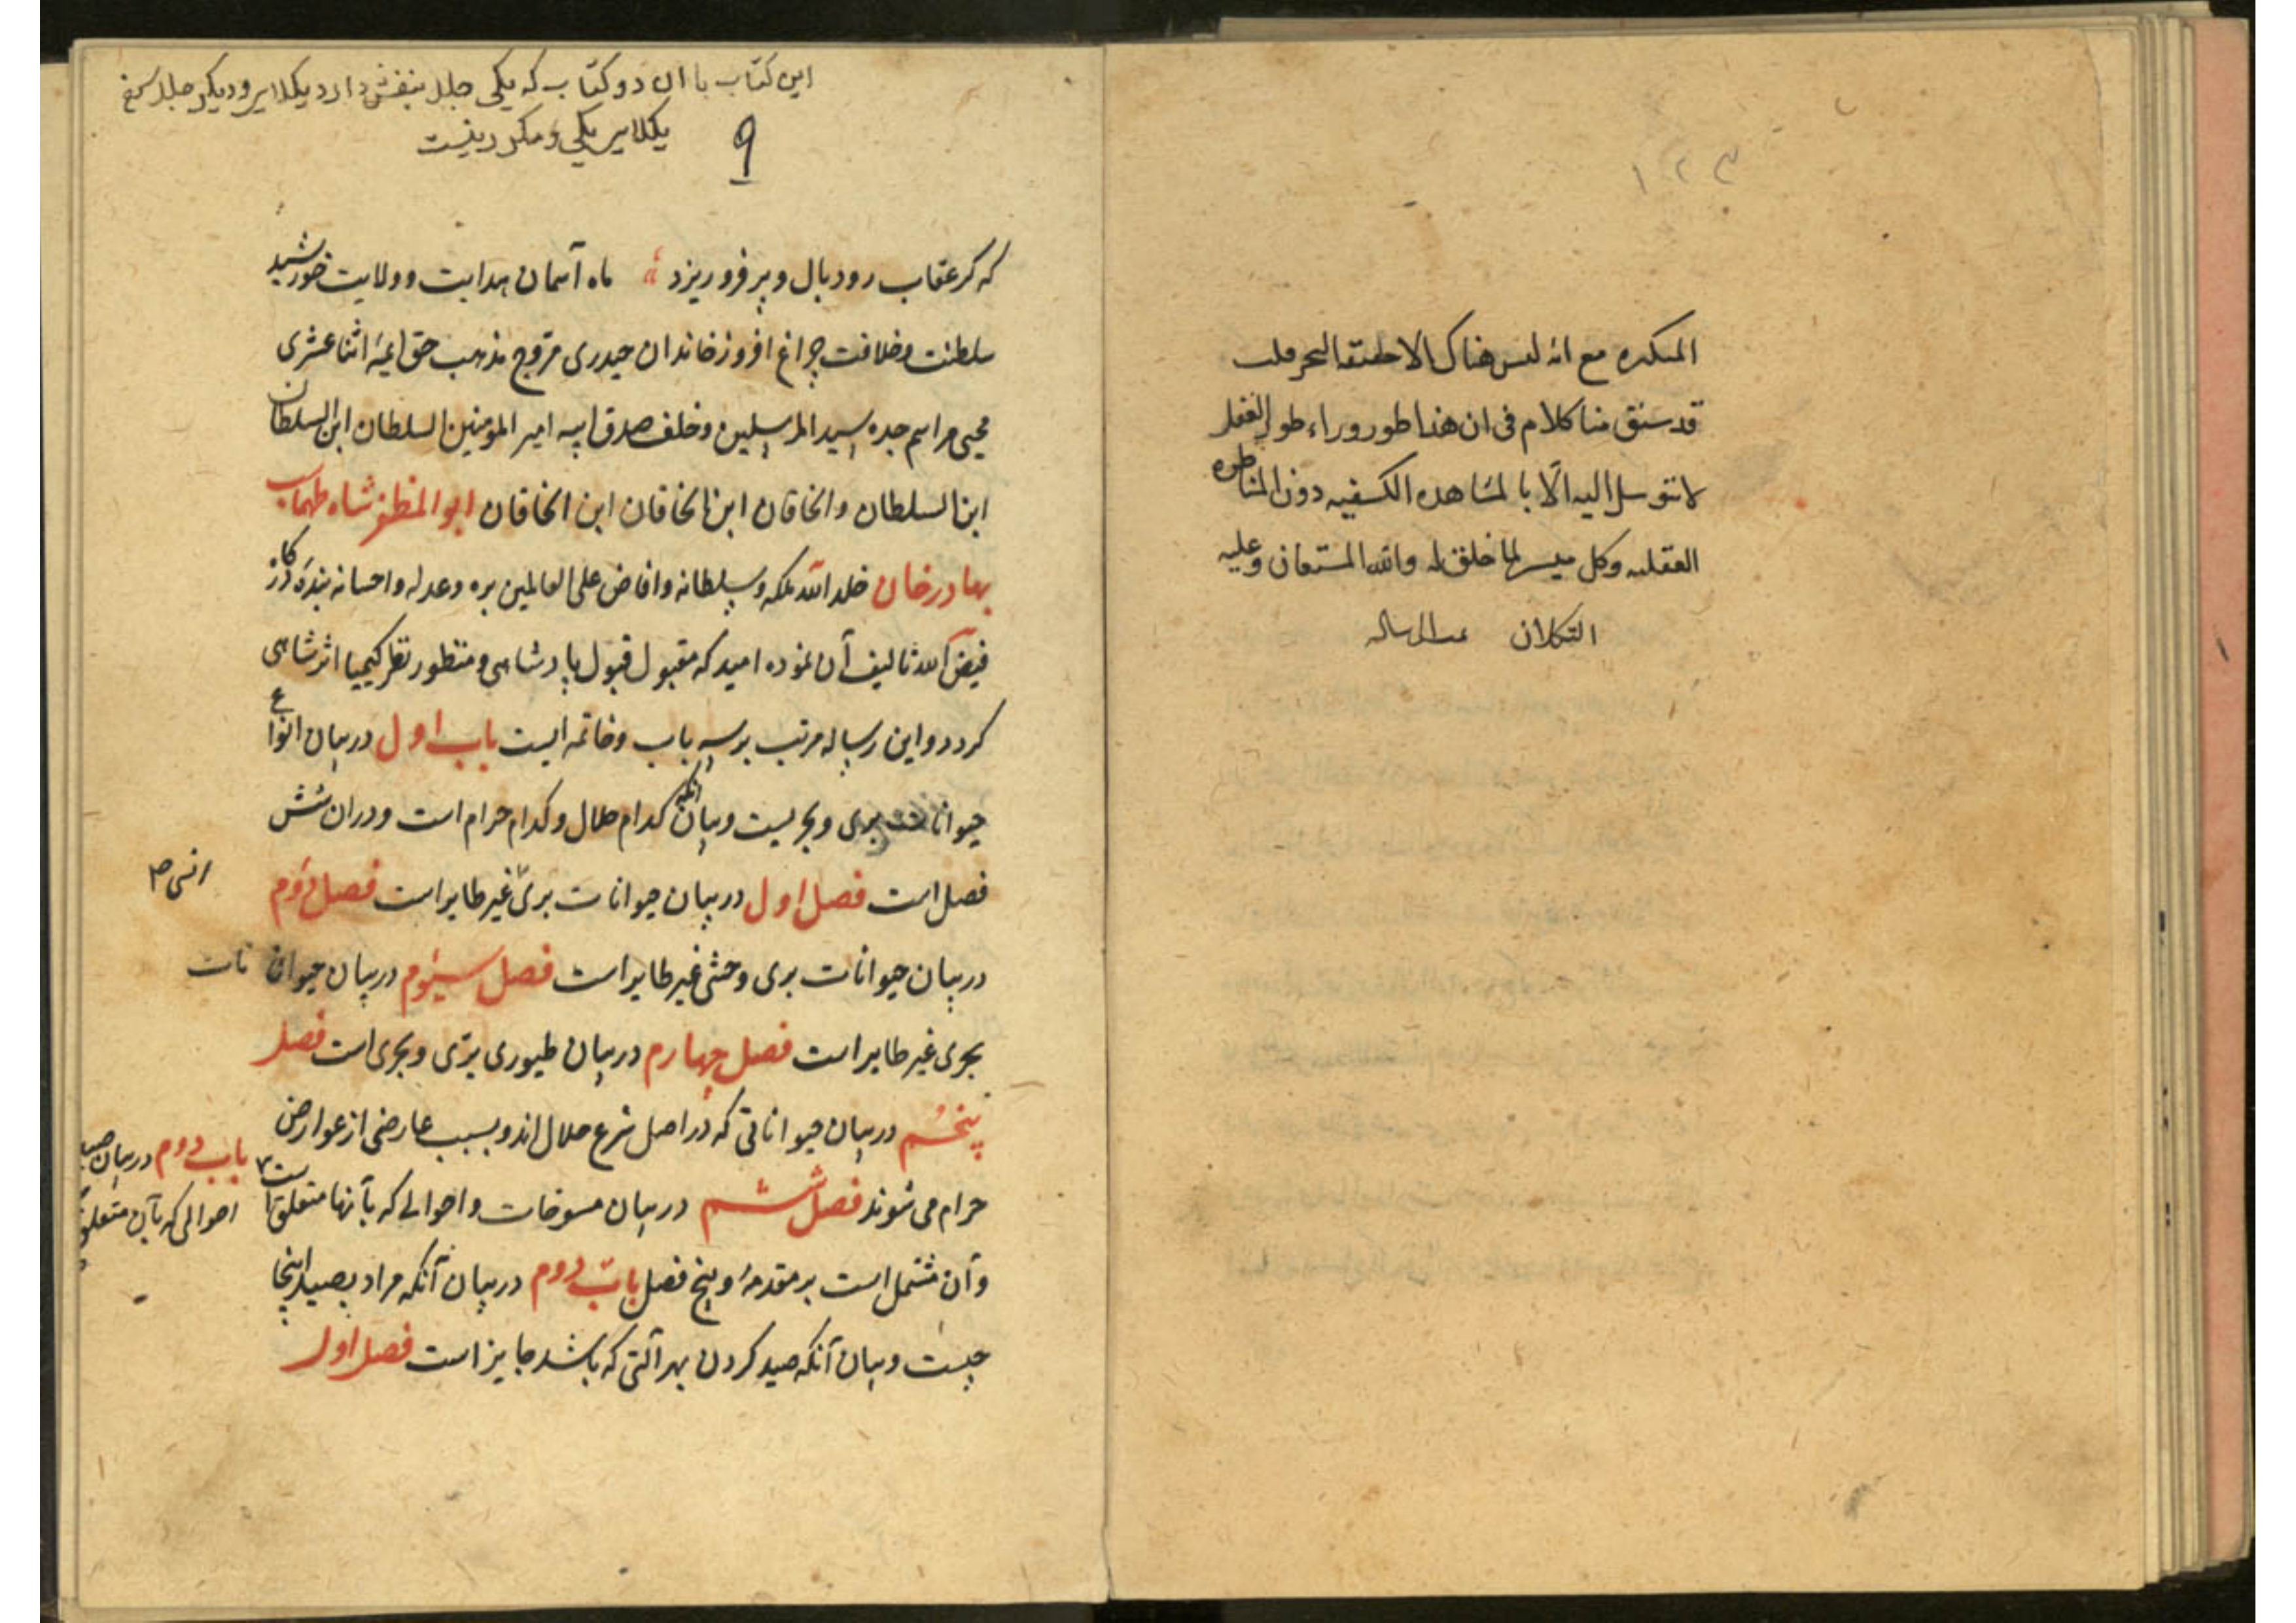 ١٢٣
المتكثره مع انه ليس هناك الا حقيقة البحر قلت
قد سبق منا كلام فى ان هذا طور وراء طور العقل
لا يتوسل اليه الّا بالمشاهده الكشفيه دون المناظره
العقليه وكل ميسر لما خلق له والله المستعان وعليه
التكلان تمت الرساله
اين كتاب با ان دو كتاب كه يكى جلد بنفش دارد ويكر جلد سرخ
يكى ومكرر نيست
٩
که کر عقاب رود بال و پر فرو ریزد ماه آسمان هدایت و ولایت خورشید
سلطنت و خلافت چراغ افروز خاندان حیدری مروّج مذهب حق ایمهٔ اثنا عشری
محیی مراسم جده سید المرسلین و خلف صدق ابیه امیر المؤمنین السلطان ابن السلطان
ابن السلطان والخاقان ابن الخاقان ابن الخاقان ابو المظفر شاه طهماسب
بهادر خان خلد الله ملکه و سلطانه وافاض علی العالمین بره وعدله واحسانه بندهٔ
فیض الله تالیف آن نموده امید که مقبول قبول پادشاهی و منظور نظر کیمیا اثر شاهی
کردد و این رساله مرتب بر سه باب و خاتمه ایست باب اول در بیان انواع
حیوانات بری و بحریست و بیان آنکه کدام حلال و کدام حرام است و در ان شش
فصل است فصل اول در بیان حیوانات بریّ غیر طایر است فصل دوم
انسی ص
در بیان حیوانات بری وحشی غیر طایر است فصل سیّوم در بیان حیوانات
بحری غیر طایر است فصل چهارم در بیان طیوری برّی و بحری است فصل
پنجم در بیان حیواناتی که در اصل شرع حلال اند و بسبب عارضی از عوارض
حرام می شوند فصل ششم در بیان مسوخات و احوالی که بآنها متعلق است
باب دوم در بیان صید
احوالی که بآن متعلق
وآن مشتمل است بر مقدمهٔ و پنج فصل باب دوم در بیان آنکه مراد بصید اینجا
چیست و بیان آنکه صید کردن بهر آلتی که باشد جایز است فصل اول